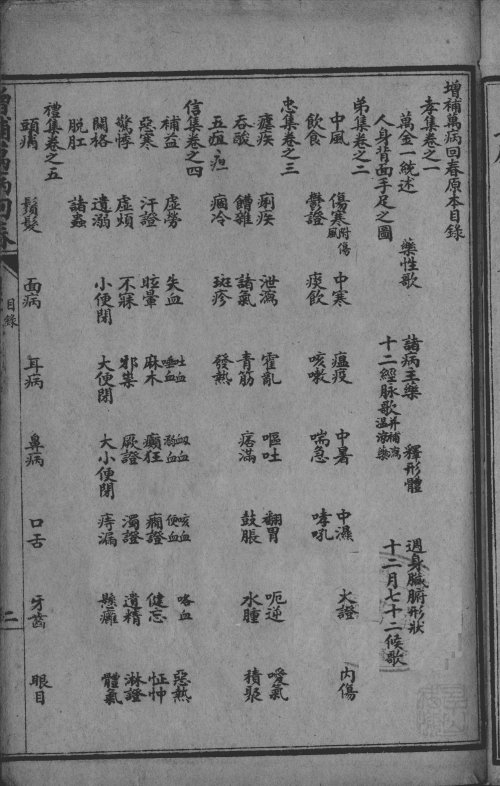 增補萬病回春原本目錄
孝集卷之一
萬金一統述 藥性歌 諸病主藥 釋形體 週身臟腑形狀
人身背面手足之圖 十二經脉歌并補瀉溫涼藥 十二月七十二候歌
弟集卷之二
中風 傷寒附傷風 中寒 瘟疫 中暑 中濕 火證 內傷
飲食 鬱證 痰飲 咳嗽 喘急 哮吼
忠集卷之三
瘧疾 痢疾 泄瀉 霍亂 嘔吐 翻胃 呃逆 噯氣
吞酸 嘈雜 諸氣 青筋 痞滿 鼓脹 水腫 積聚
五疸 痼冷 斑疹 發熱
信集卷之四
補益 虛勞 失血 吐血 唾血 衄血 溺血 咳血 便血 咯血 惡熱
惡寒 汗證 眩暈 麻木 癲狂 癇證 健忘 怔忡
驚悸 虛煩 不寐 邪祟 厥證 濁證 遺精 淋證
關格 遺溺 小便閉 大便閉 大小便閉 痔漏 懸癰 體氣
脫肛 諸蟲
禮集卷之五
頭痛 鬚髮 面病 耳病 鼻病 口舌 牙齒 眼目
增補萬病回春
目錄
二